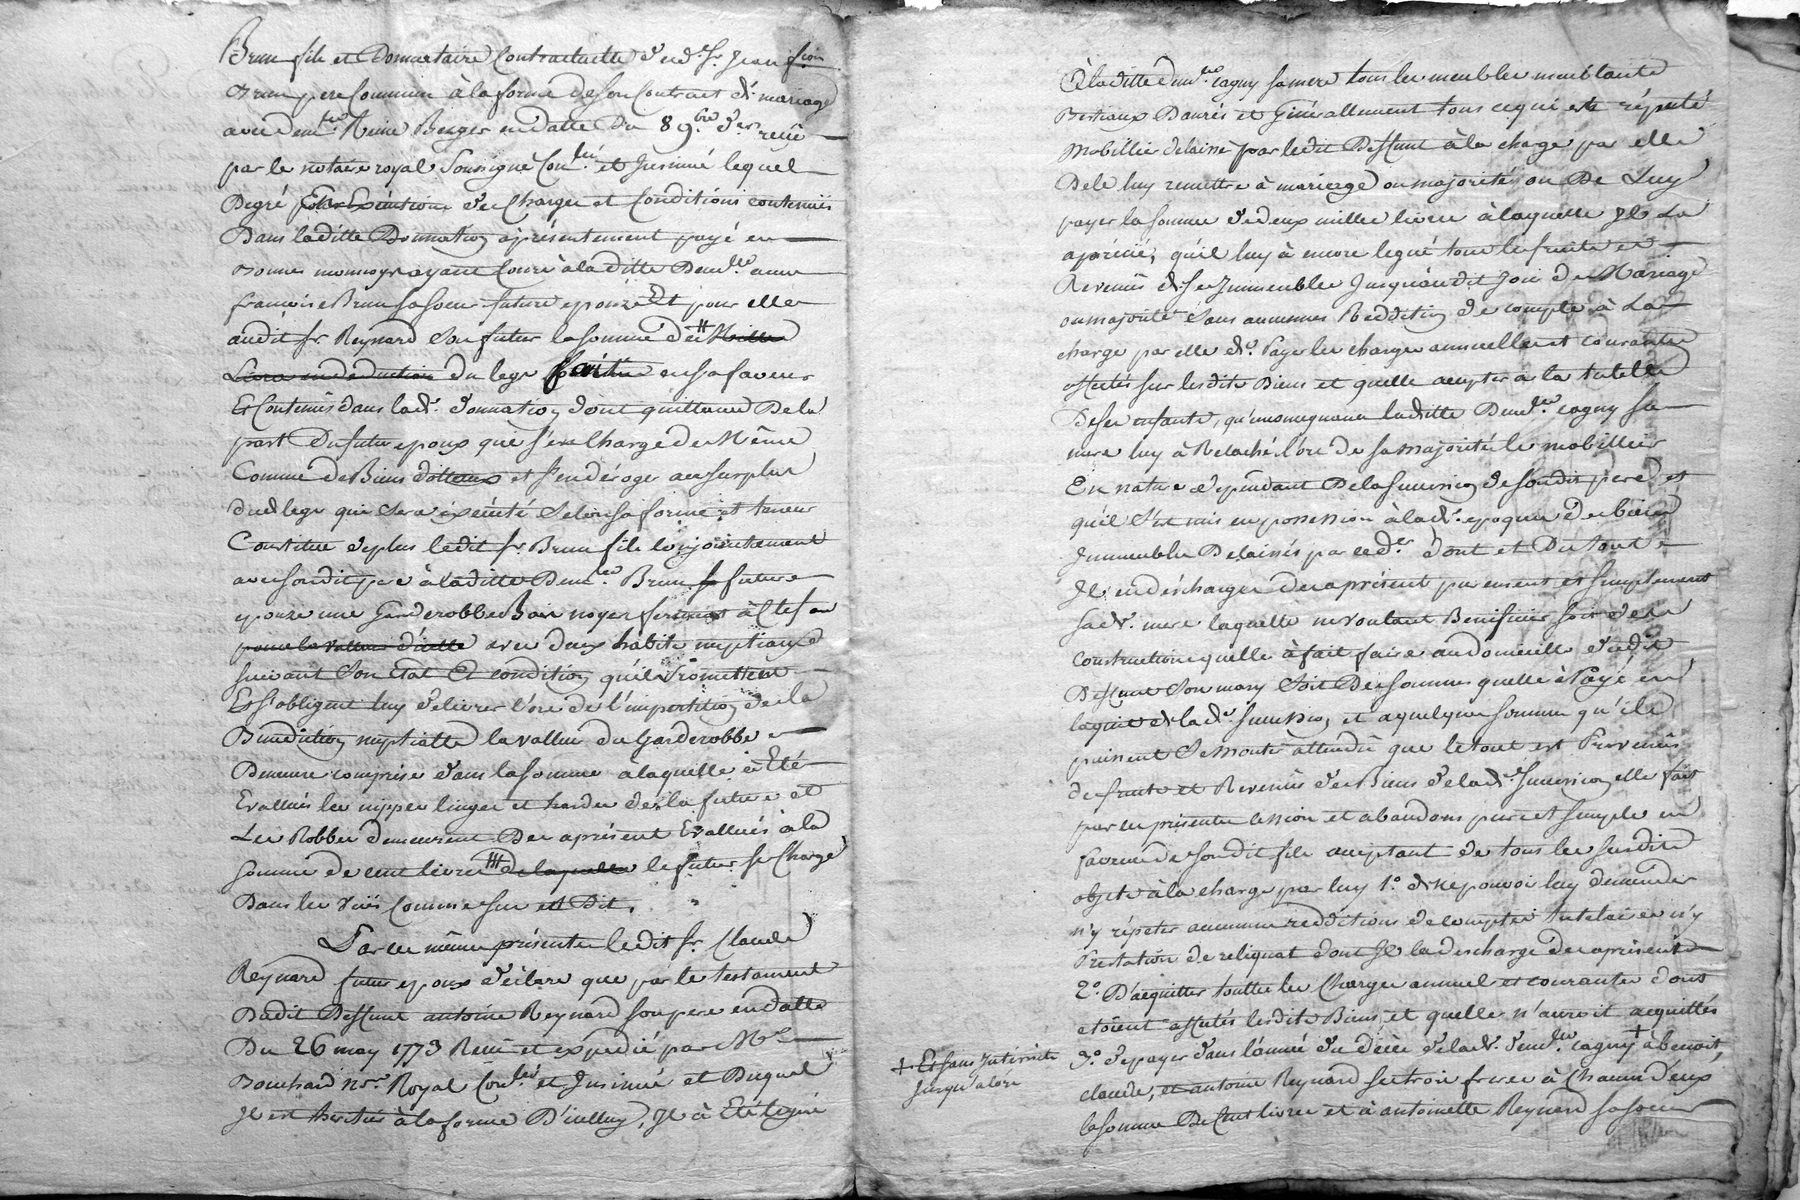 Brun fils et Donnataire Contractuelle dud. sr. Jean fçois
Brun pere Commun à la forme de son Contract de mariage
avec dem.lle Reine Berger en datte du 8 9.bre dr. recû
par le notaire royal soussigné Con.lé et Insinué lequel
Degré des Charges et Conditions contenües
Dans laditte Donnation àprésentement payé en
Bonnes monnoye ayant Cours à laditte Dem.lle anne
françoise Brun sa soeur future epouze Et pour elle
audit sr. Reynard son futur la somme de # Mille
Livres en deduction du legs faitte en sa faveur
Et Contenüs dans lad. donnation dont quittance De la
part Du futur epoux qui s'en Charge de Même
Comme de Biens dottaux et s'en déroger au surplus
dud. legs qui sera éxécuté selon sa forme et teneur
Constitue de plus ledit sr. Brun fils conjointement
avec sondit pere à laditte Dem.lle Brun future
epouze une Garderobbe Bois noyer fermant à Clef
pour la valleur d'icelle avec deux habits nuptiaux
suivant Son état Et condition qu'ils Promettent
Et s'obligent luy délivrer lors de l'impartition de la
Bénédiction nuptialle la valleur du Garderobbe
Demeure comprise dans la somme à laquelle à Eté
Evallués les nippes linges et hardes de la future et
Les Robbes demeurent Des aprésent Evallués à la
somme de cent livres ## de laquelle le futur se Charge
Dans les vües Comme sus est Dit.
Par ces mêmes présentes ledit sr. Claude
Reynard futur epoux déclare que par le testament
Dudit Deffunt antoine Reynard son pere en datte
Du 26 may 1773 Recû et expedié par Me.
Bouchard nre. Royal Con.lé et Insinué et Duquel
Il est héritier à la forme D'icelluy, Il à Eté légué
À laditte dem.lle Cagny sa mere tous les meubles meublants
Bestiaux Danrés et Générallement tous ce qui est réputé
Mobillier délaissé par ledit Deffunt à la charge par elle
De le luy remettre à mariage ou majorité ou De Luy
payer la somme de deux mille livres à laquelle Il La
aprécié, qu'il luy à encore legué tous les fruits et
Revenüs de ses Immeubles Jusqu'audit Jour de Mariage
ou majorité sans aucunnes Reddition de compte à La
charge par elle de Payer les charges annuelles et courantes
affectés sur lesdits Biens et quelle accepter à la tutelle
De ses enfants, qu'en consequence laditte Dem.lle Cagny sa
mere luy à Relaché lors de sa majorité le mobillier
En nature dépendant De la succession de sondit pere et
qu'il s'est mis en possession à lad. epoque des biens
Immeubles Delaissés par led. dont et Du tout
Il en décharge des aprésent purement et simplement
sad. mere laquelle ne voulant Bénéficier soit des
Constructions quelle à fait faire au domicille dudit
Deffunt son mary soit Des sommes quelle à Payé en
l'acquit de lad. succession, et a quelque somme qu'ils
puissent se monter attendû que le tout est Provenüs
de fruits et Revenüs des Biens de lad. succession elle fait
par ces présentes cession et abandons pur et simple en
faveur de sondit fils acceptant de tous les susdits
objets à la charge par luy 1.° de ne pouvoir luy demander
n'y répeter aucunne redditions de comptes tutelaires n'y
Prestation de reliquat dont Il la descharge des aprésent
2.° D'acquitter touttes les Charges annuel et courantes dont
etoient affectés lesdits Biens, et quelle n'auroit acquittés
3.° de payer dans l'année du décès de lad. dem.lle Cagny + à benoit,
claude, et antoine Reynard ses trois freres à Chacun d'eux
la somme De Cent livres et à antoinette Reynard sa soeur
+ Et sans Interests
Jusqu'alors